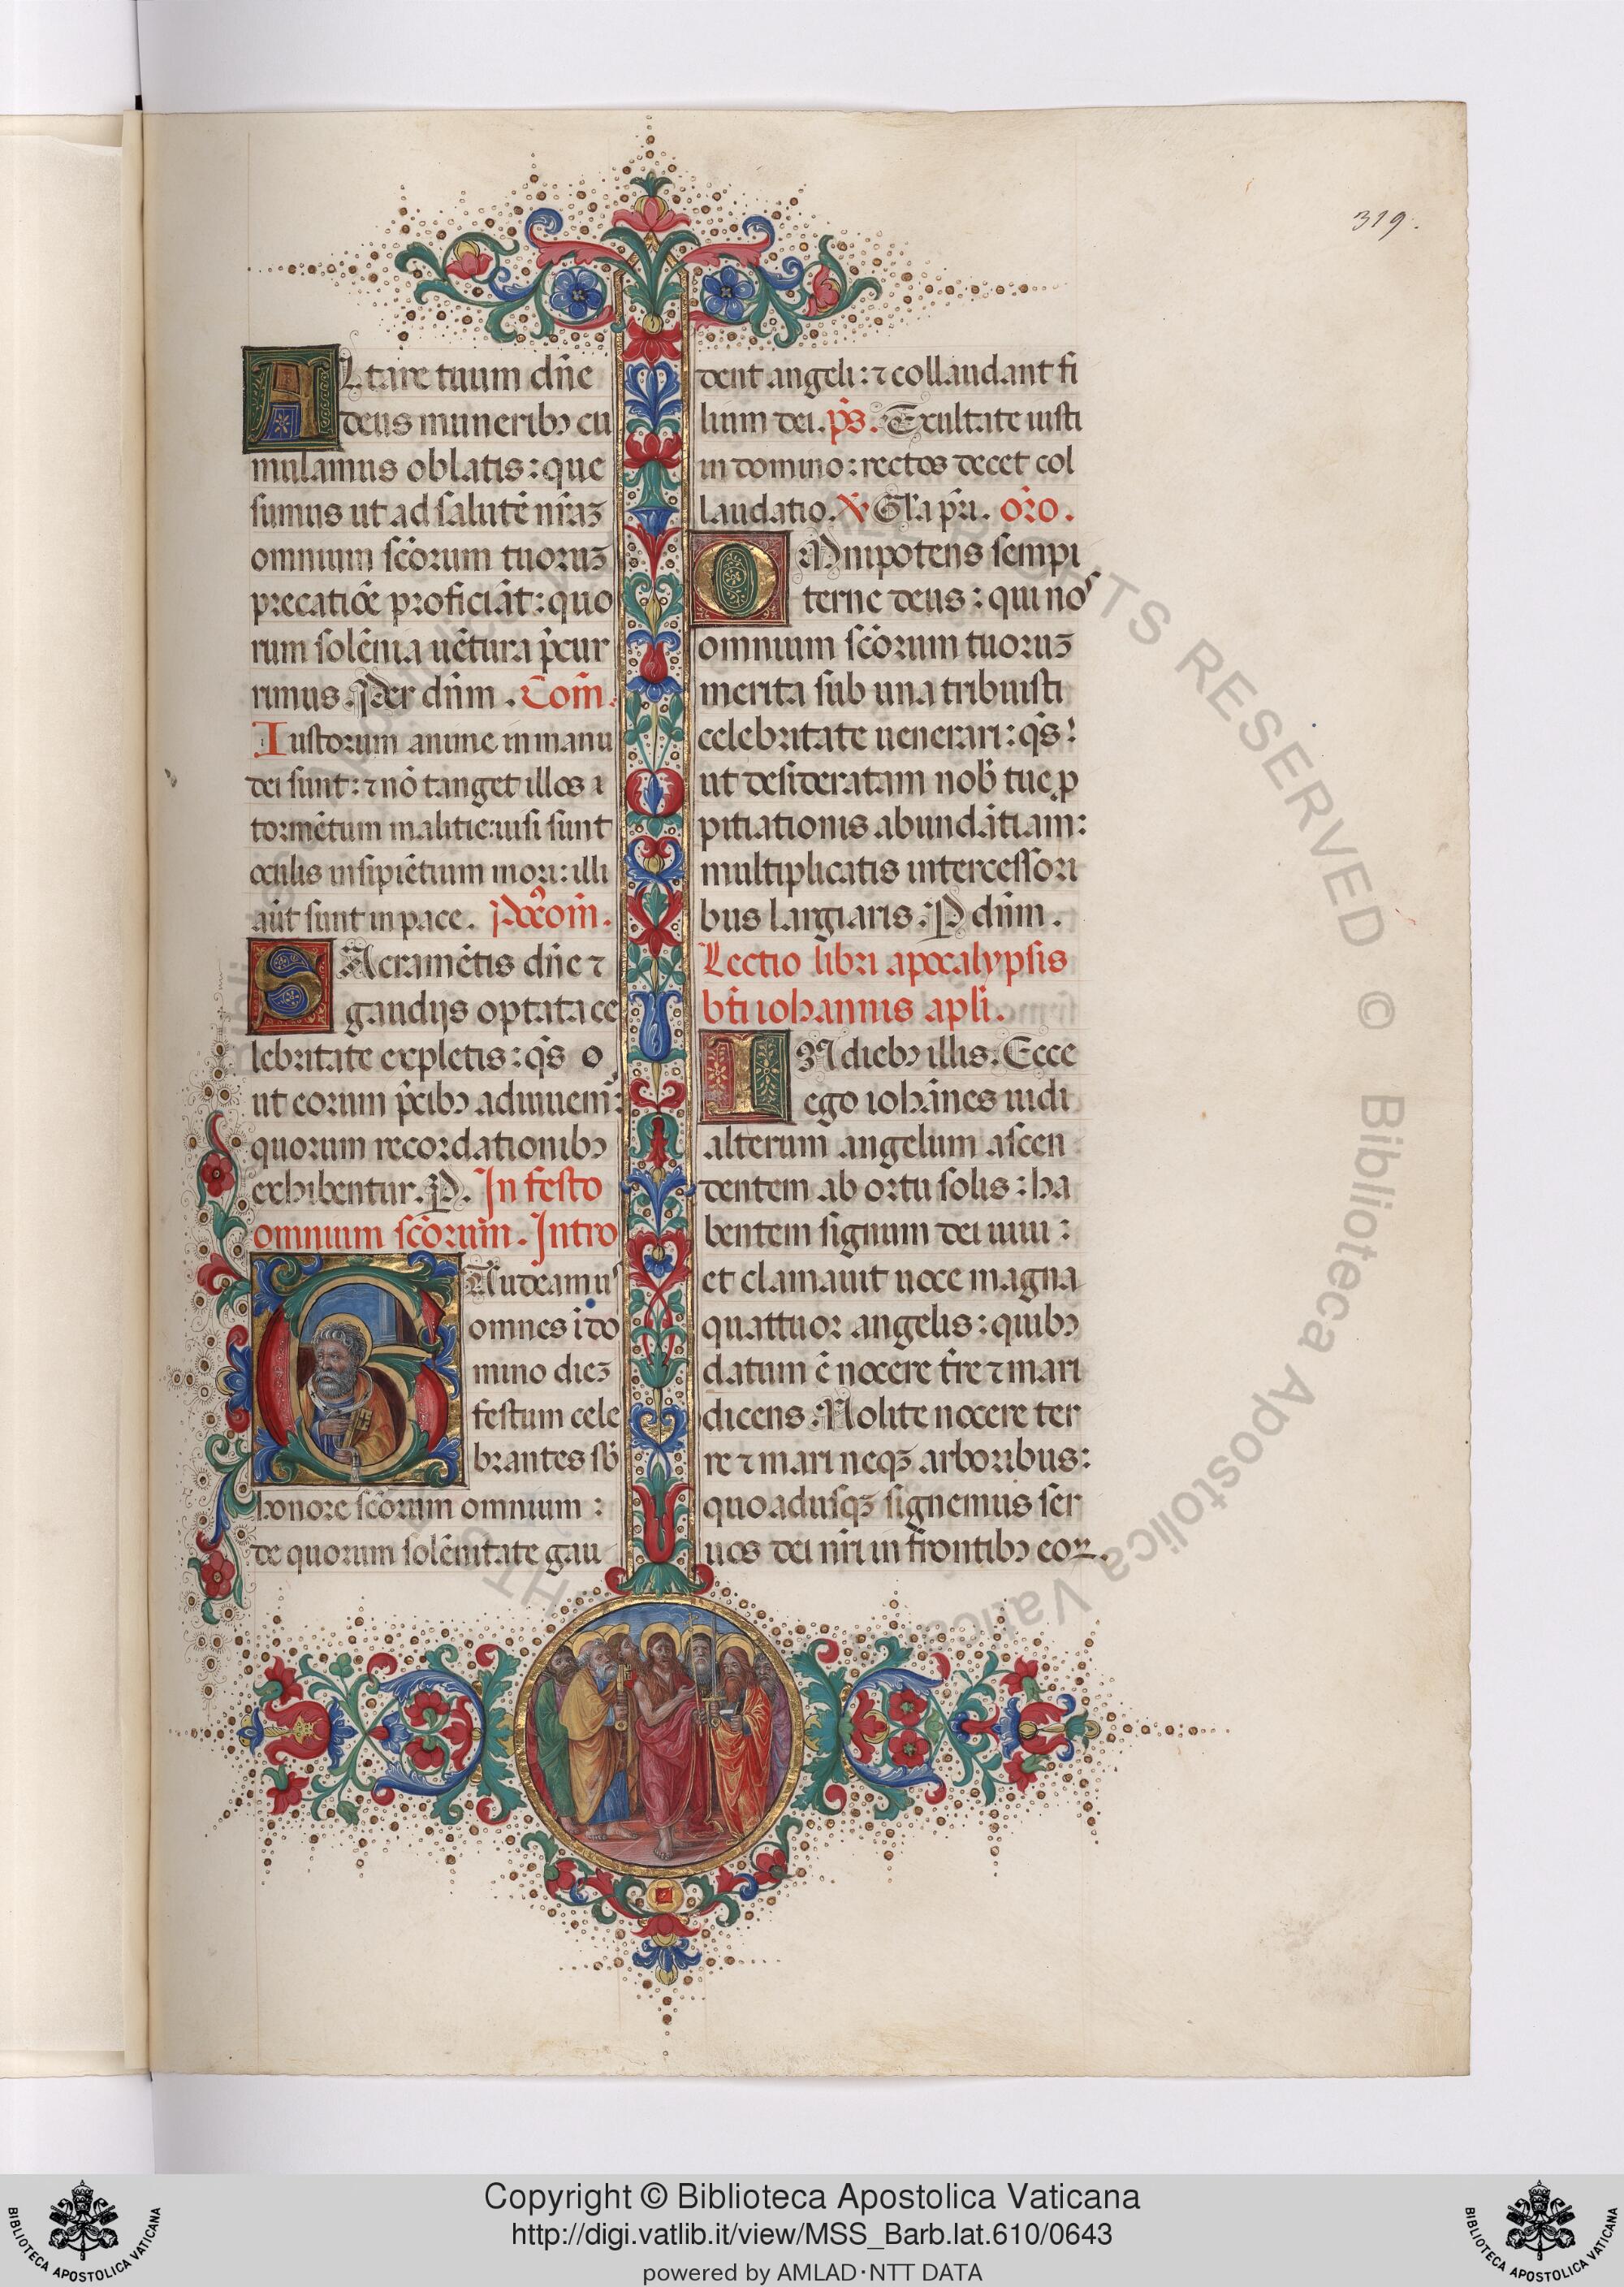 319.
ALtare tuum dñe
deus muneribꝫ cu
mulamus oblatis: que
sumus ut ad salutē nr̄aꝫ
omnium scōrum tuoruꝫ
precatiōe proficiāt: quo
rum solēnia uētura p̄cur
rimus. Per dn̄m. Com̄.
Iustorum anime in manu
dei sunt: ⁊ nō tanget illos
tormētum malitie: uisi sunt
oculis insipiētium mori: illi
aūt sunt in pace.
SAcramētis dñe ⁊
gaudijs optata ce
lebritate expletis: qs̄ o
ut eorum p̄cibꝫ adiuuem̄:
quorum recordationibꝫ
exhibentur. P. In festo
omnium scōrum. Intro
GAudeamus
omnes ī do
mino dieꝫ
festum cele
brantes sb̄
honore scōrum omnium:
de quorum solēnitate gau
dent angeli: ⁊ collaudant fi
lium dei. ps̄. Exultate iusti
in domino: rectos decet col
laudatio. ℣ Gl̄a pr̄i. or̄o.
OMnipotens sempi
terne deus: qui nos
omnium scōrum tuoruꝫ
merita sub una tribuisti
celebritate uenerari: qs̄
ut desideratam nob̄ tue ꝓ
pitiationis abundātiam:
multiplicatis intercessori
bus largiaris. P dn̄m.
Lectio libri apocalypsis
bt̄i iohannis apl̄i.
IN diebꝫ illis. Ecce
ego iohānes uidi
alterum angelum ascen
dentem ab ortu solis: ha
bentem signum dei uiui:
et clamauit uoce magna
quattuor angelis: quibꝫ
datum ē nocere tr̄e ⁊ mari
dicens. Nolite nocere ter
re ⁊ mari neqꝫ arboribus:
quoadusqꝫ signemus ser
uos dei nr̄i in frontibꝫ eoꝝ.
RIGHTS RESERVED © Biblioteca Apostolica Vaticana
Copyright © Biblioteca Apostolica Vaticana
http://digi.vatlib.it/view/MSS_Barb.lat.610/0643
powered by AMLAD·NTT DATA
BIBLIOTECA APOSTOLICA VATICANA
BIBLIOTECA APOSTOLICA VATICANA